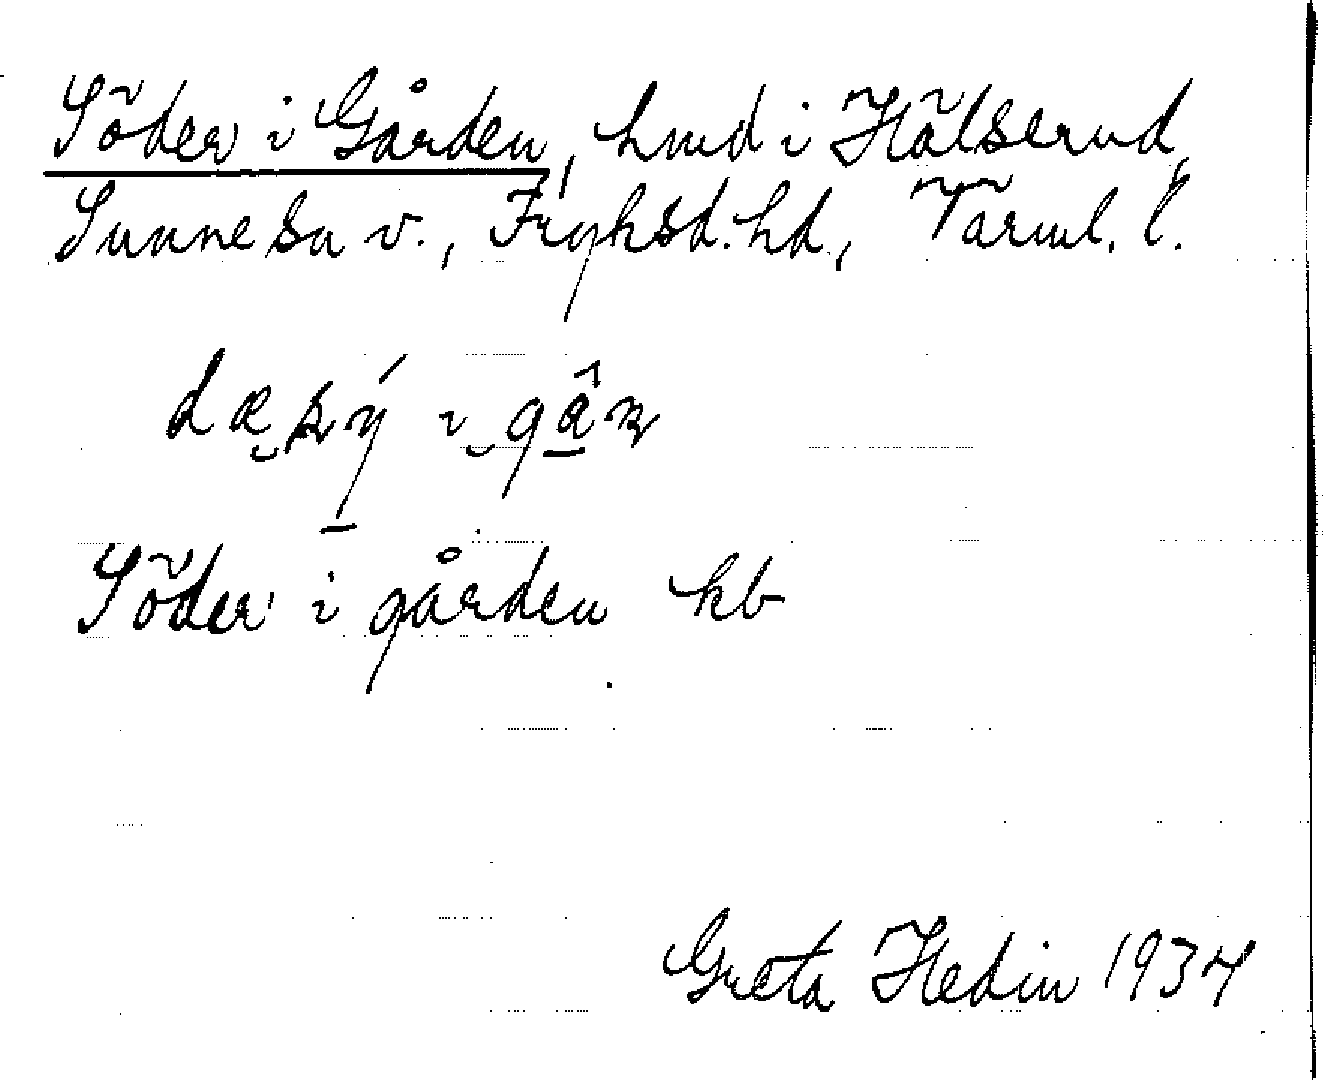 Söder i Gården, hmd i Hälserud,
Sunne sn v., Fryksd. hd, Värml. l.
Söder i gården kb
Greta Hedin 1934